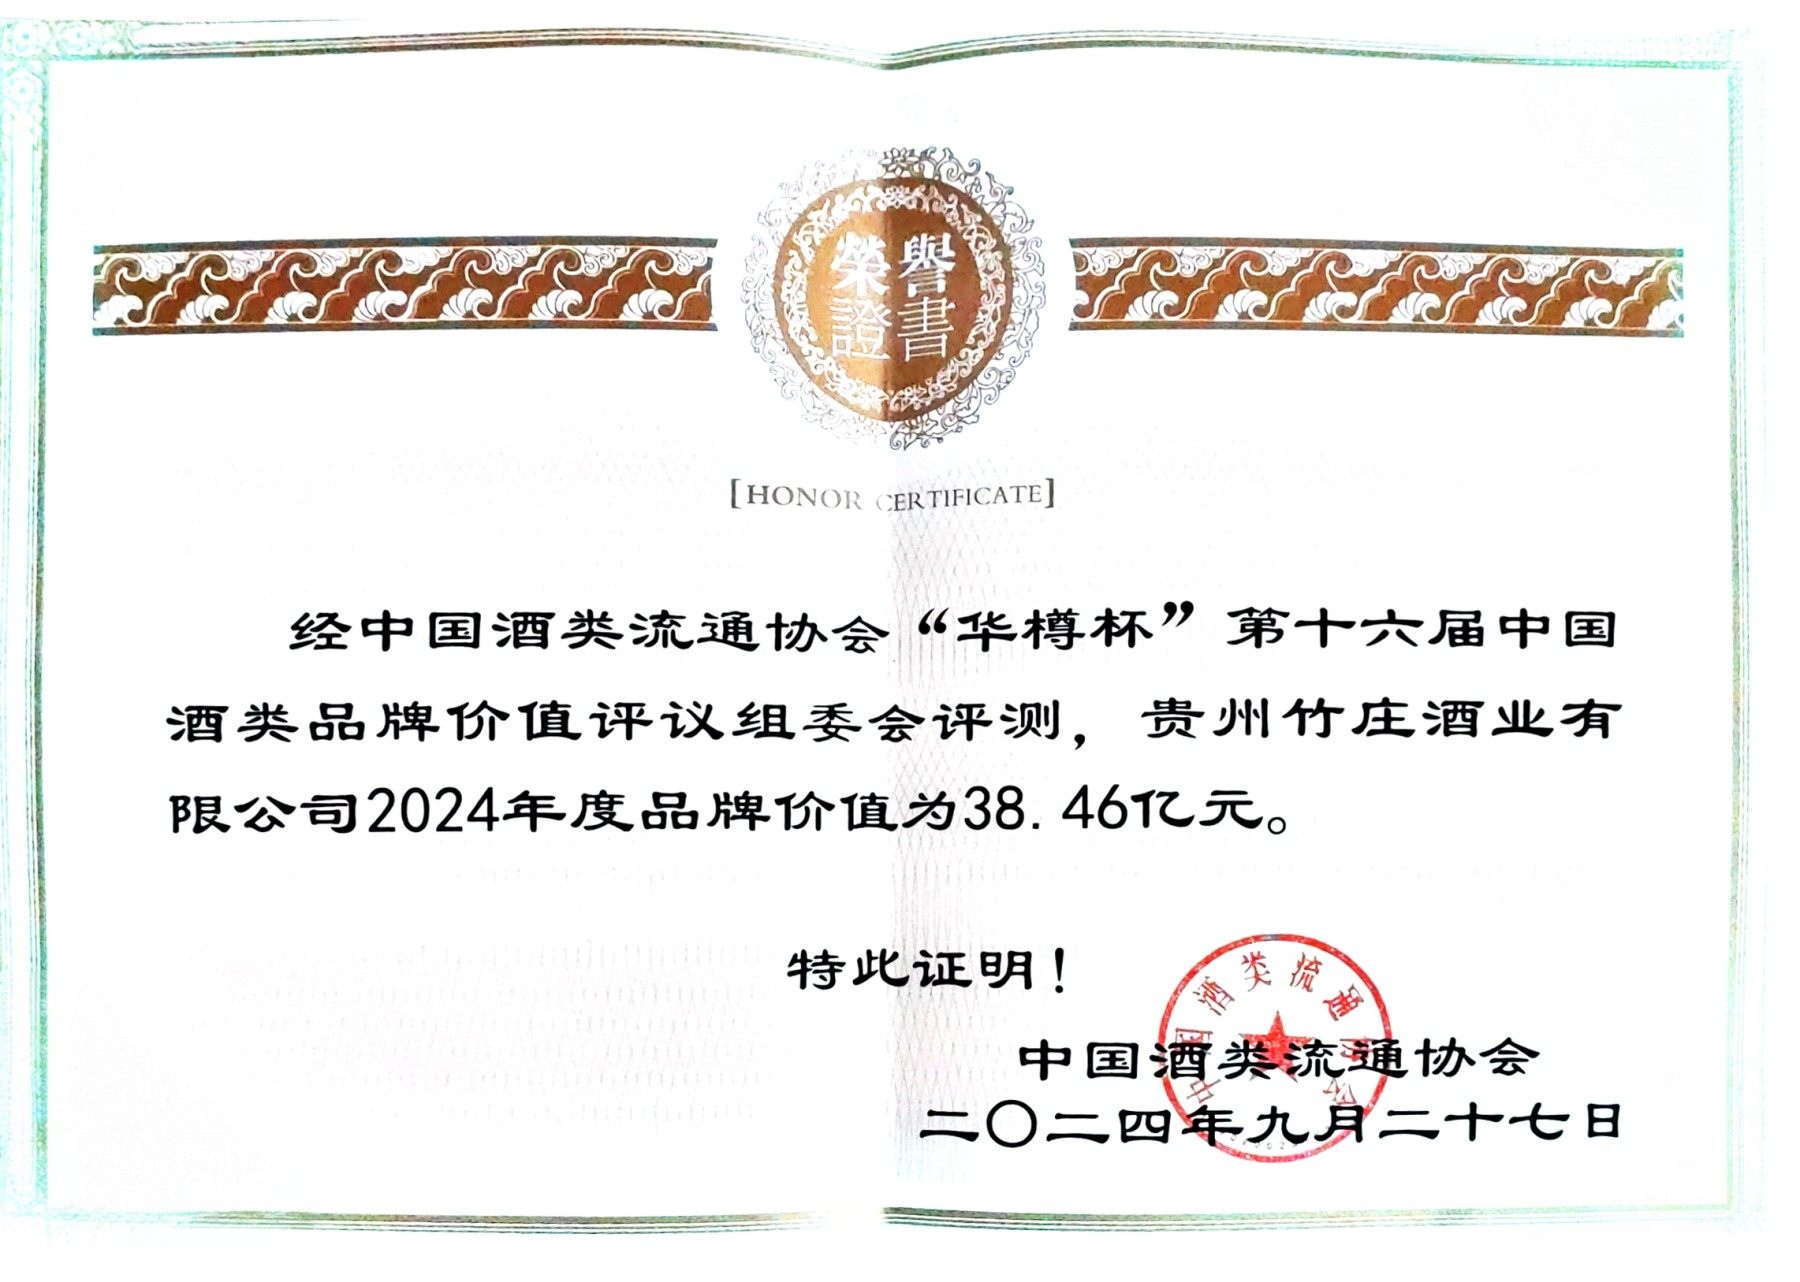 榮譽
證書
[HONOR CERTIFICATE]
经中国酒类流通协会“华樽杯”第十六届中国
酒类品牌价值评议组委会评测，贵州竹庄酒业有
限公司2024年度品牌价值为38.46亿元。
特此证明！
中国酒类流通协会
中国酒类流通协会
二〇二四年九月二十七日